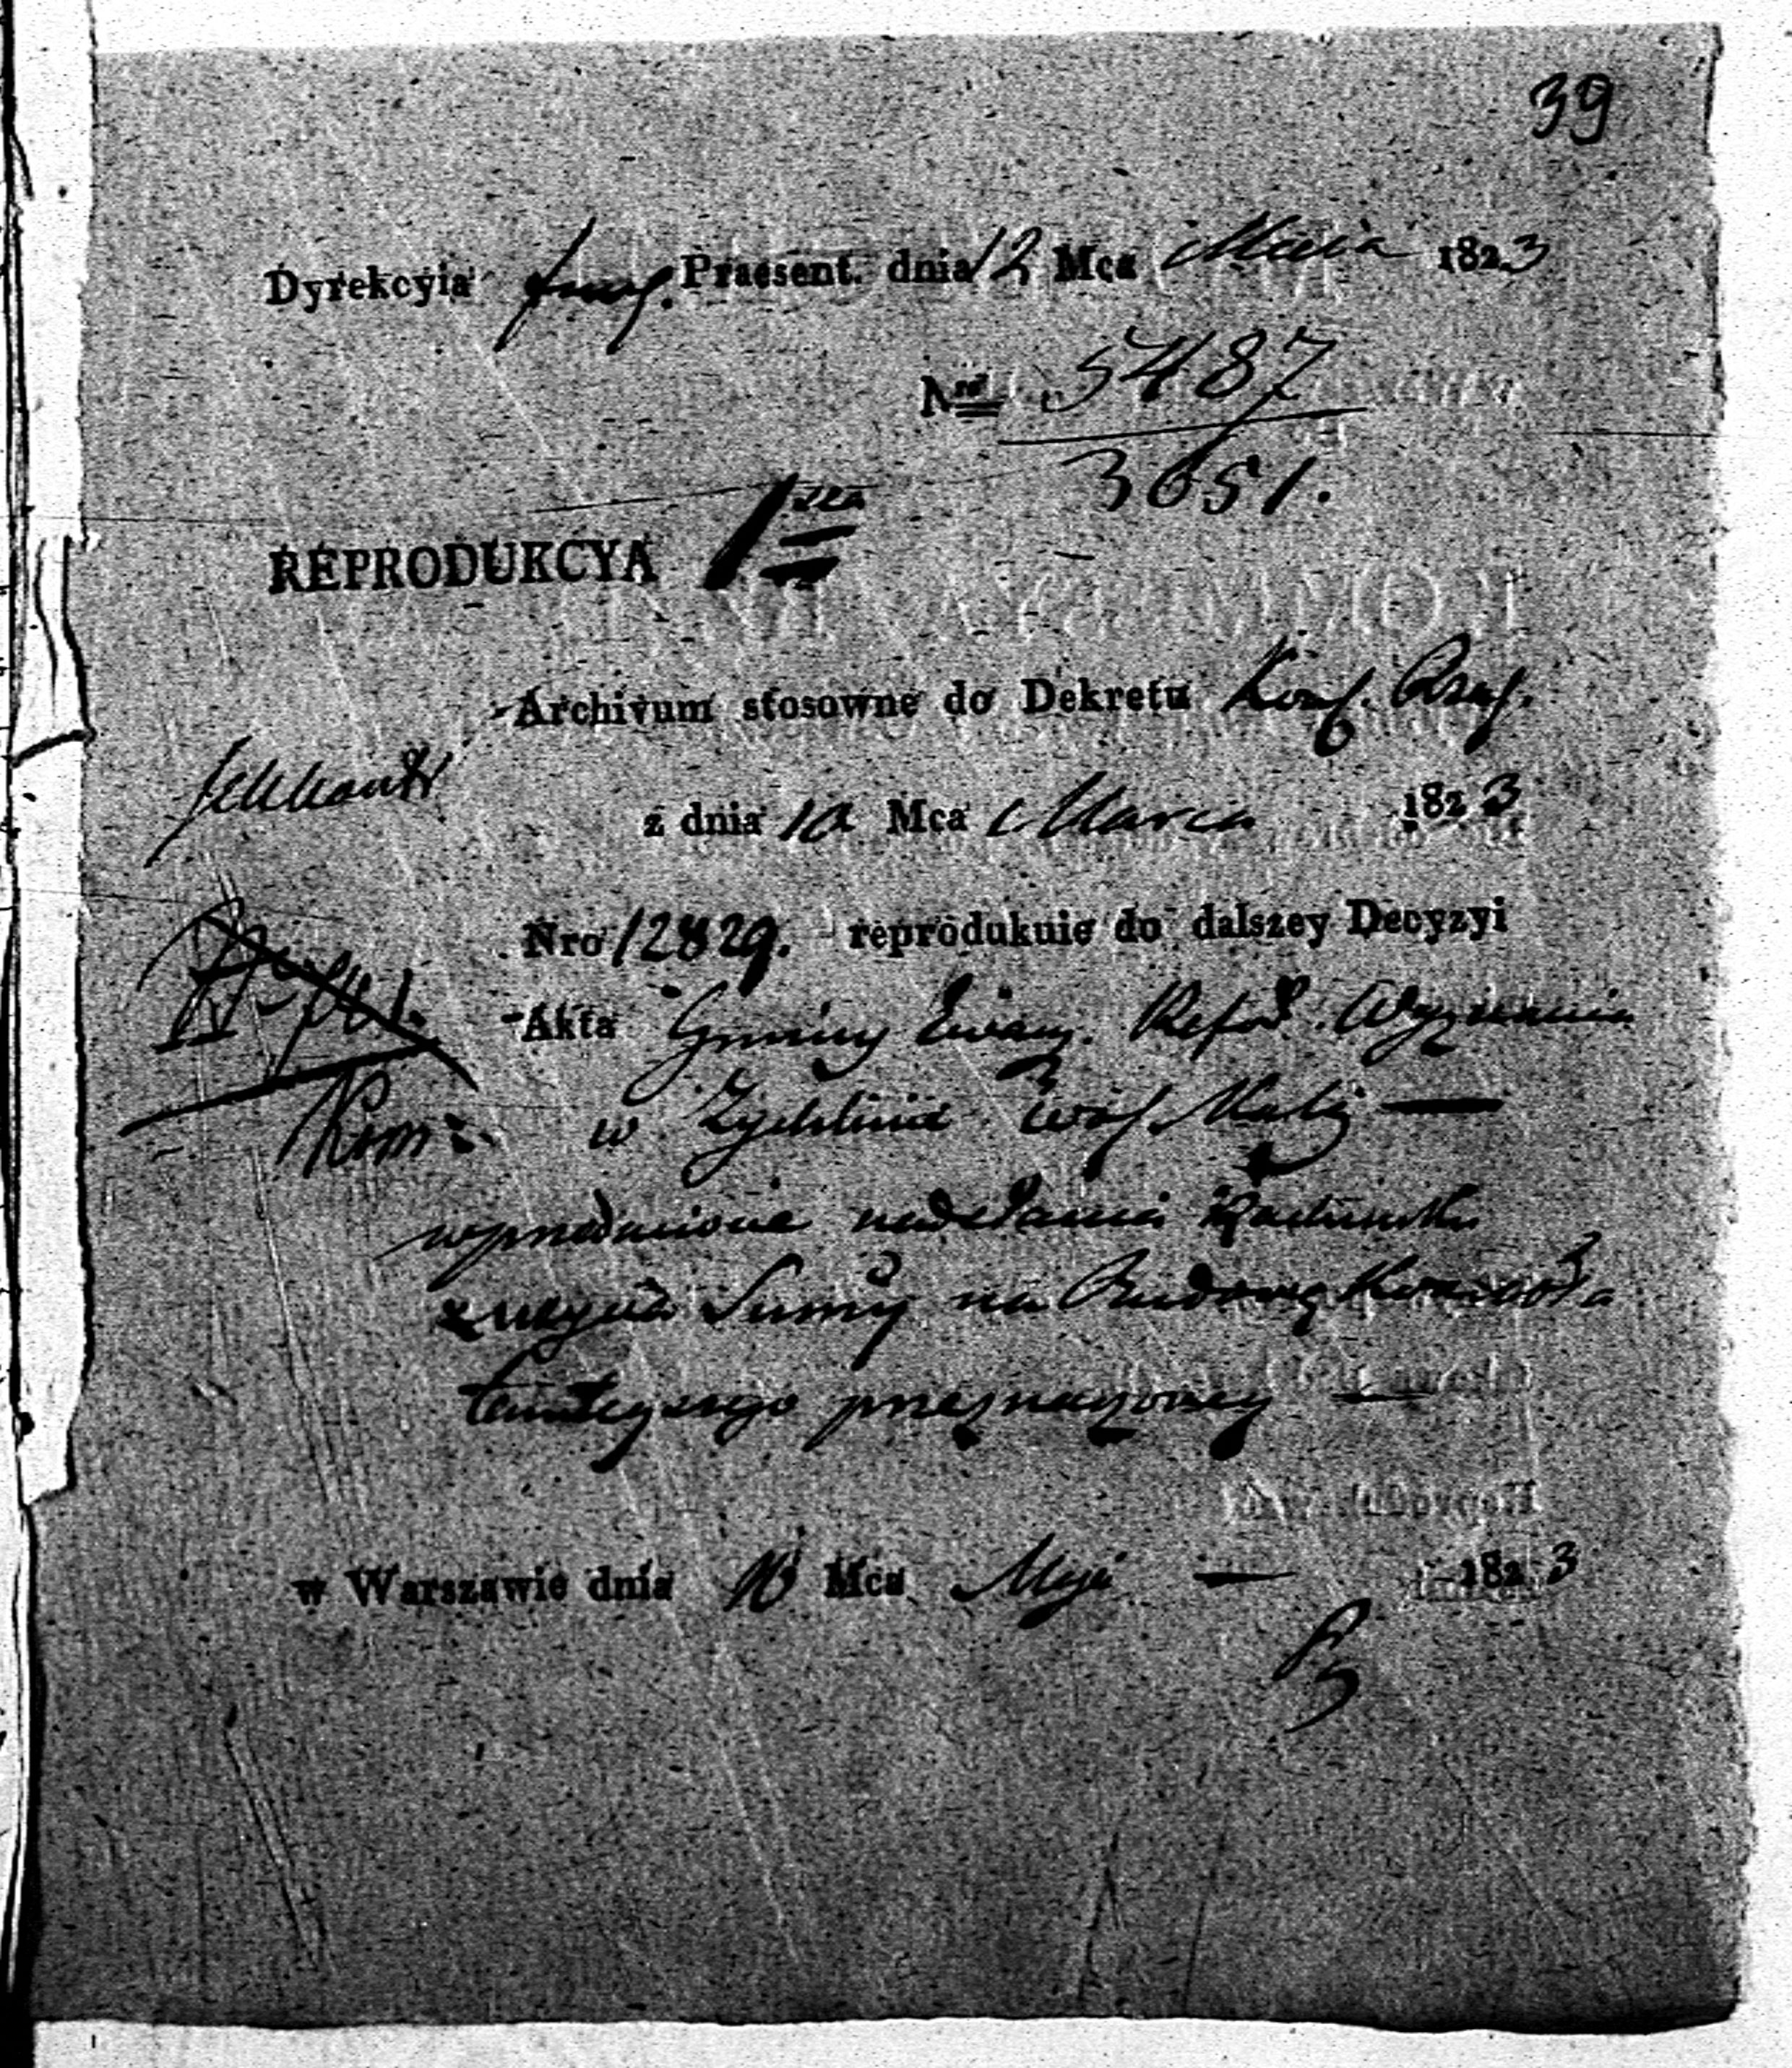 39
Dyrekcyia Praesent. dnia 12 Mca Maia 1823
Nro 5487
3651.
REPRODUKCYA 1sza
Archivum stosowne do Dekretu
z dnia 10 Mca Marca 1823
Nro 12829. reprodukuie do dalszey Decyzyi
Akta Gminy Ewang. Refor. Wyznania
w Żychlinie Woj. Kali
względnie nadesłania Rachunku
z użycia Summy na Budowę Kościoła
tamteyszego przeznaczoney
Kom:
w Warszawie dnia 10 Mca Maja 1823